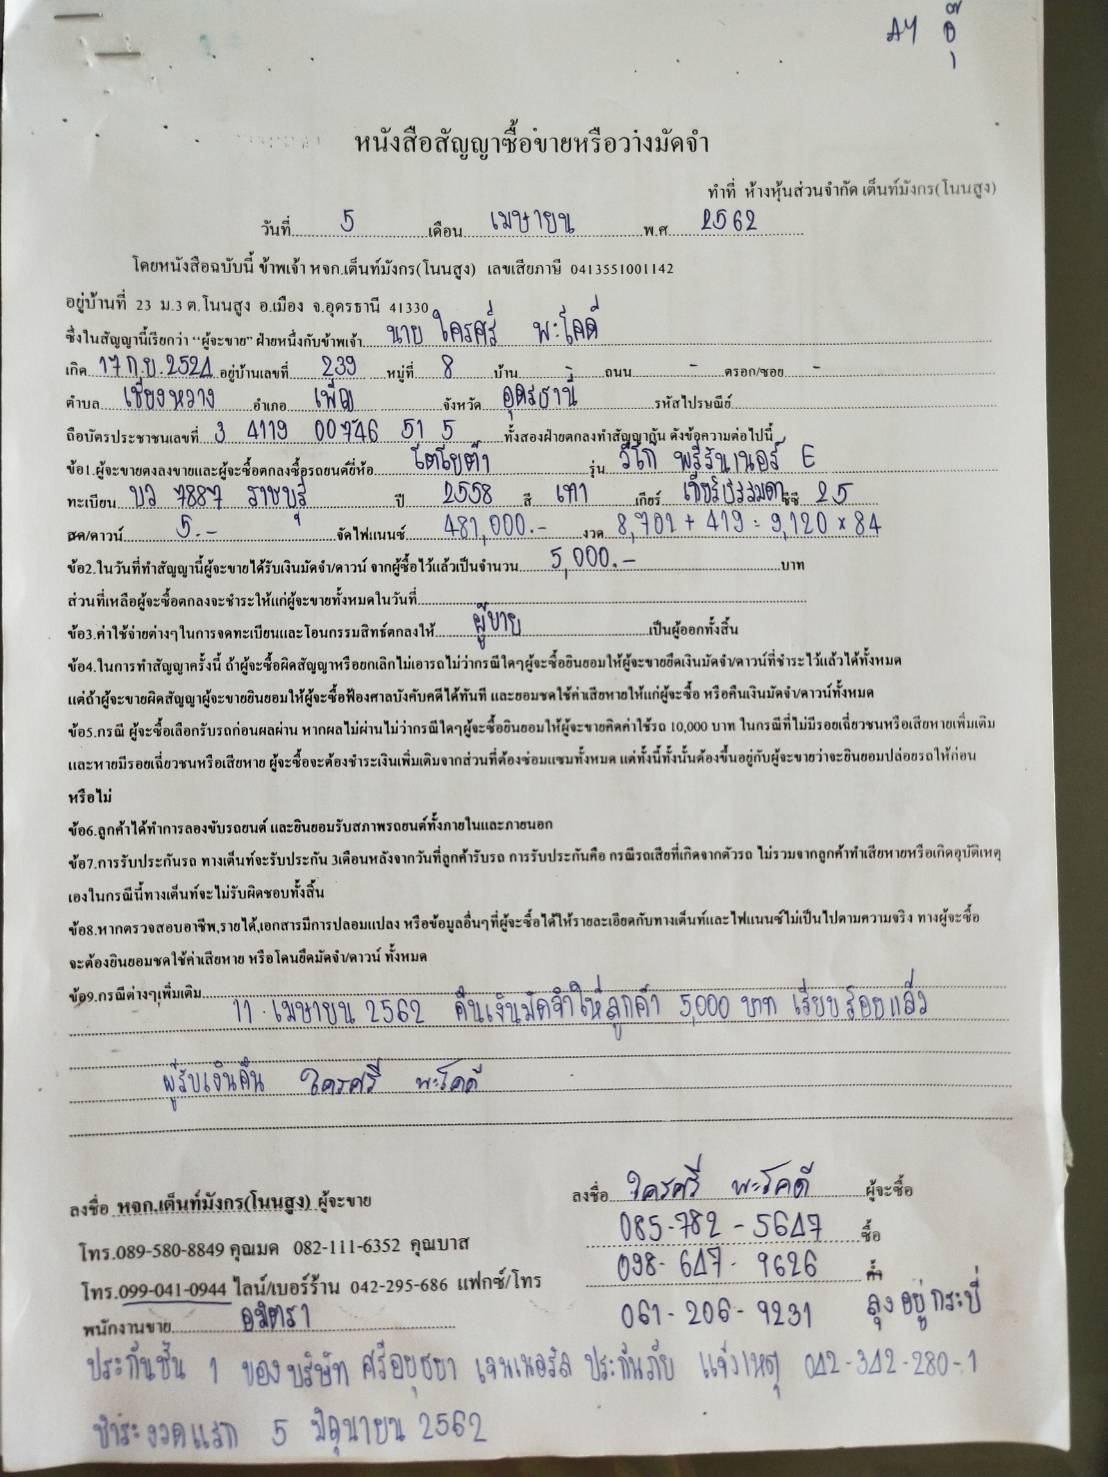 หนังสือสัญญาซื้อขายหรือวางมัดจำ
ทำที่ ห้างหุ้นส่วนจำกัด เต็นท์มังกร(โนนสูง)
วันที่ 5 เดือน เมษายน พ.ศ. 2562
โดยหนังสือฉบับนี้ ข้าพเจ้า หจก.เต็นท์มังกร(โนนสูง) เลขเสียภาษี 0413551001142
อยู่บ้านที่ 23 ม.3 ต.โนนสูง อ.เมือง จ.อุดรธานี 41330
ซึ่งในสัญญานี้เรียกว่า "ผู้จะขาย" ฝ่ายหนึ่งกับข้าพเจ้า นาย ใครศรี พะโคดี
เกิด 17 ก.ย. 2524 อยู่บ้านเลขที่ 239 หมู่ที่ 8 บ้าน - ถนน - ตรอก/ซอย -
ตำบล เชียงหวาง อำเภอ เพ็ญ จังหวัด อุดรธานี รหัสไปรษณีย์
ถือบัตรประชาชนเลขที่ 3 4119 00746 51 5 ทั้งสองฝ่ายตกลงทำสัญญากัน ดังข้อความต่อไปนี้
ข้อ1.ผู้จะขายตงลงขายและผู้จะซื้อตกลงซื้อรถยนต์ยี่ห้อ โตโยต้า รุ่น วีโก้ พรีรันเนอร์ E
ทะเบียน บว 7887 ราชบุรี ปี 2558 สี เทา เกียร์ เกียร์ธรรมดา ซีซี 2.5
สด/ดาวน์ 5.- จัดไฟแนนซ์ 481,000.- งวด 8,701 + 419 = 9,120 x 84
ข้อ2.ในวันที่ทำสัญญานี้ผู้จะขายได้รับเงินมัดจำ/ดาวน์ จากผู้ซื้อไว้แล้วเป็นจำนวน 5,000.- บาท
ส่วนที่เหลือผู้จะซื้อตกลงจะชำระให้แก่ผู้จะขายทั้งหมดในวันที่
ข้อ3.ค่าใช้จ่ายต่างๆในการจดทะเบียนและโอนกรรมสิทธ์ตกลงให้ ผู้ขาย เป็นผู้ออกทั้งสิ้น
ข้อ4.ในการทำสัญญาครั้งนี้ ถ้าผู้จะซื้อผิดสัญญาหรือยกเลิกไม่เอารถไม่ว่ากรณีใดๆผู้จะซื้อยินยอมให้ผู้จะขายยึดเงินมัดจำ/ดาวน์ที่ชำระไว้แล้วได้ทั้งหมด
แต่ถ้าผู้จะขายผิดสัญญาผู้จะขายยินยอมให้ผู้จะซื้อฟ้องศาลบังคับคดีได้ทันที และยอมชดใช้ค่าเสียหายให้แก่ผู้จะซื้อ หรือคืนเงินมัดจำ/ดาวน์ทั้งหมด
ข้อ5.กรณี ผู้จะซื้อเลือกรับรถก่อนผลผ่าน หากผลไม่ผ่านไม่ว่ากรณีใดๆผู้จะซื้อยินยอมให้ผู้จะขายคิดค่าใช้รถ 10,000 บาท ในกรณีที่ไม่มีรอยเฉี่ยวชนหรือเสียหายเพิ่มเติม
และหายมีรอยเฉี่ยวชนหรือเสียหาย ผู้จะซื้อจะต้องชำระเงินเพิ่มเติมจากส่วนที่ต้องซ่อมแซมทั้งหมด แต่ทั้งนี้ทั้งนั้นต้องขึ้นอยู่กับผู้จะขายว่าจะยินยอมปล่อยรถให้ก่อน
หรือไม่
ข้อ6.ลูกค้าได้ทำการลองขับรถยนต์ และยินยอมรับสภาพรถยนต์ทั้งภายในและภายนอก
ข้อ7.การรับประกันรถ ทางเต็นท์จะรับประกัน 3เดือนหลังจากวันที่ลูกค้ารับรถ การรับประกันคือ กรณีรถเสียที่เกิดจากตัวรถ ไม่รวมจากลูกค้าทำเสียหายหรือเกิดอุบัติเหตุ
เองในกรณีนี้ทางเต็นท์จะไม่รับผิดชอบทั้งสิ้น
ข้อ8.หากตรวจสอบอาชีพ,รายได้,เอกสารมีการปลอมแปลง หรือข้อมูลอื่นๆที่ผู้จะซื้อได้ให้รายละเอียดกับทางเต็นท์และไฟแนนซ์ไม่เป็นไปตามความจริง ทางผู้จะซื้อ
จะต้องยินยอมชดใช้ค่าเสียหาย หรือโดนยึดมัดจำ/ดาวน์ ทั้งหมด
ข้อ9.กรณีต่างๆเพิ่มเติม
11 เมษายน 2562 คืนเงินมัดจำให้ลูกค้า 5,000 บาท เรียบร้อยแล้ว
ผู้รับเงินคืน ใครศรี พะโคดี
ลงชื่อ หจก.เต็นท์มังกร(โนนสูง) ผู้จะขาย
ลงชื่อ ใครศรี พะโคดี ผู้จะซื้อ
โทร.089-580-8849 คุณมด 082-111-6352 คุณบาส
085-782-5647 ซื้อ
โทร.099-041-0944 ไลน์/เบอร์ร้าน 042-295-686 แฟกซ์/โทร
098-647-9626 ค้ำ
พนักงานขาย อมิตรา
061-206-9231 ลุง อยู่ กระบี่
ประกันชั้น 1 ของบริษัท ศรีอยุธยา เจนเนอรัล ประกันภัย แจ้งเหตุ 042-342-280-1
ชำระงวดแรก 5 มิถุนายน 2562